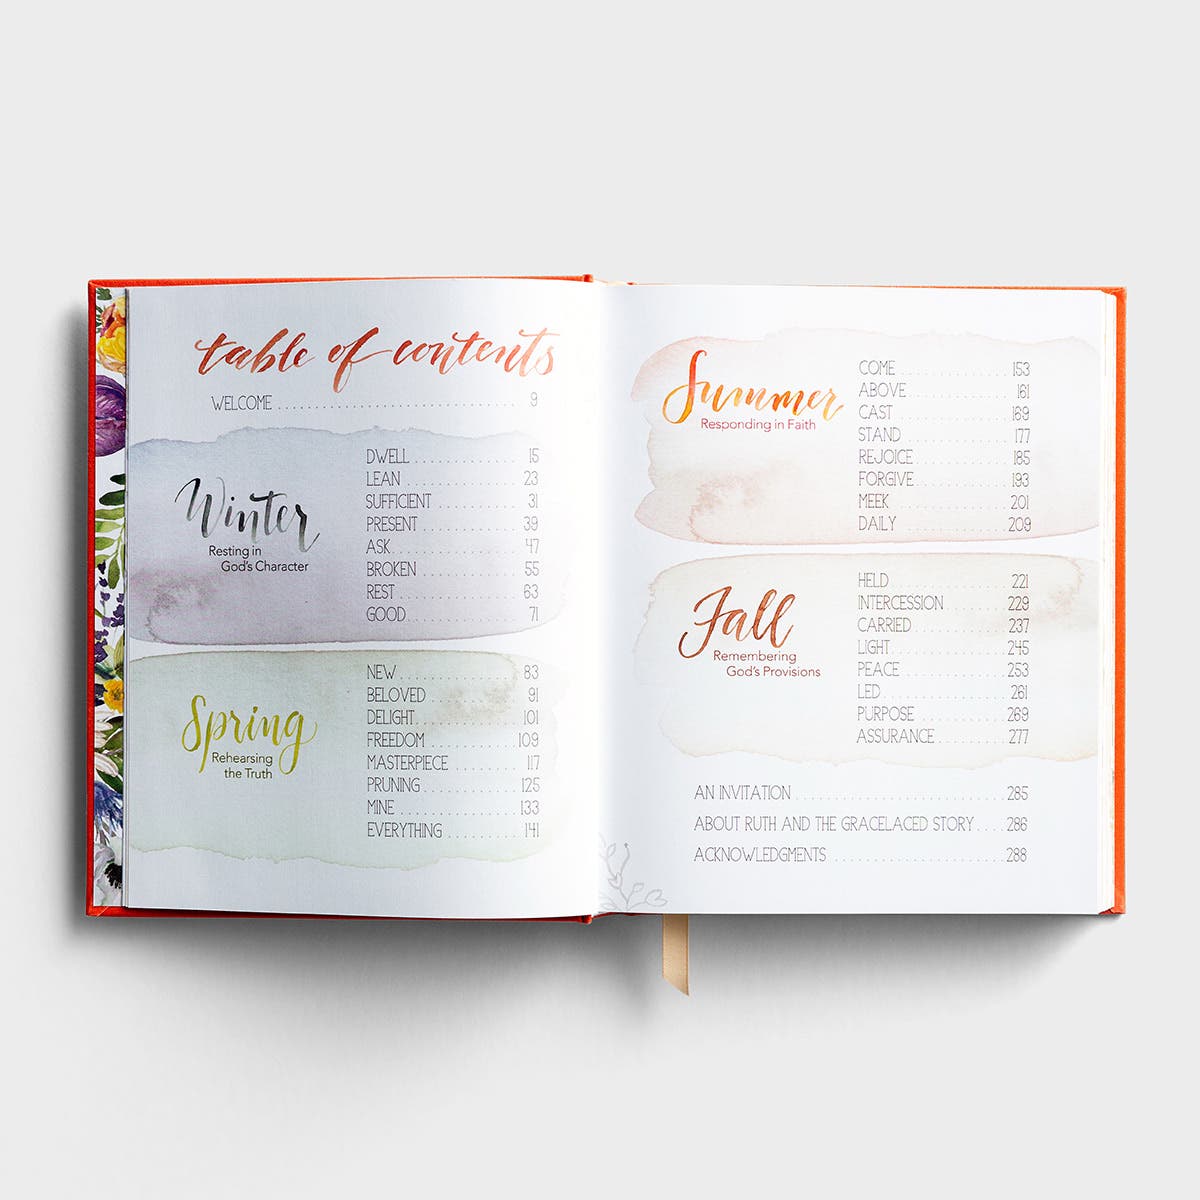 table of contents
WELCOME 9
Winter
Resting in
God's Character
DWELL 15
LEAN 23
SUFFICIENT 31
PRESENT 39
ASK 47
BROKEN 55
REST 63
GOOD 71
Spring
Rehearsing
the Truth
NEW 83
BELOVED 91
DELIGHT 101
FREEDOM 109
MASTERPIECE 117
PRUNING 125
MINE 133
EVERYTHING 141
Summer
Responding in Faith
COME 153
ABOVE 161
CAST 169
STAND 177
REJOICE 185
FORGIVE 193
MEEK 201
DAILY 209
Fall
Remembering
God's Provisions
HELD 221
INTERCESSION 229
CARRIED 237
LIGHT 245
PEACE 253
LED 261
PURPOSE 269
ASSURANCE 277
AN INVITATION 285
ABOUT RUTH AND THE GRACELACED STORY 286
ACKNOWLEDGMENTS 288